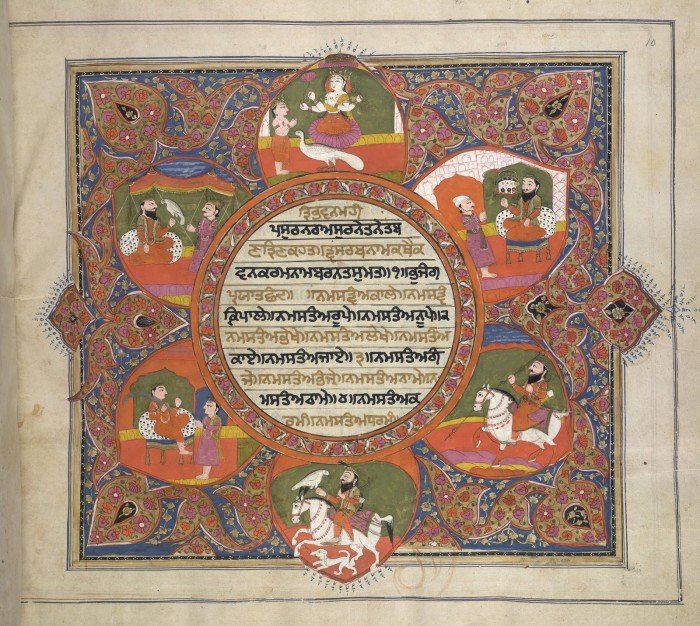 ਤ੍ਰਿਭਵਨਮਹੀ
ਪਸੁਰਨਰਅਸੁਰਨੇਤਨੇਤਬ
ਨਤ੍ਰਿਣਕਹਤ॥ਤ੍ਵਸਰਬਨਾਮਕਥੈਕ
ਵਨਕਰਮਨਾਮਬਰਨਤਸੁਮਤ॥੧॥ਭੁਜੰਗ
ਪ੍ਰਯਾਤਛੰਦ॥ ॥ਨਮਸਤ੍ਵੰਅਕਾਲੇ॥ਨਮਸਤ੍ਵੰ
ਕ੍ਰਿਪਾਲੇ॥ਨਮਸਤੰਅਰੂਪੇ॥ਨਮਸਤੰਅਨੂਪੇ॥੨॥
ਨਮਸਤੰਅਭੇਖੇ॥ਨਮਸਤੰਅਲੇਖੇ॥ਨਮਸਤੰਅ
ਕਾਏ॥ਨਮਸਤੰਅਜਾਏ॥੩॥ਨਮਸਤੰਅਗੰ
ਜੇ॥ਨਮਸਤੰਅਭੰਜੇ॥ਨਮਸਤੰਅਨਾਮੇ॥ਨ
ਮਸਤੰਅਠਾਮੇ॥੪॥ਨਮਸਤੰਅਕ
ਰਮੰ॥ਨਮਸਤੰਅਧਰਮੰ
10